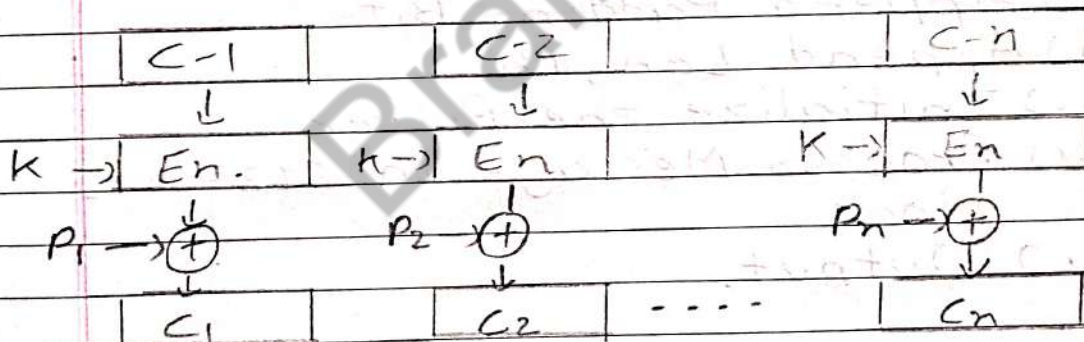 C-1 C-2 C-n
K → En. K → En K → En
P1 → + P2 → + Pn → +
C1 C2 ---- Cn